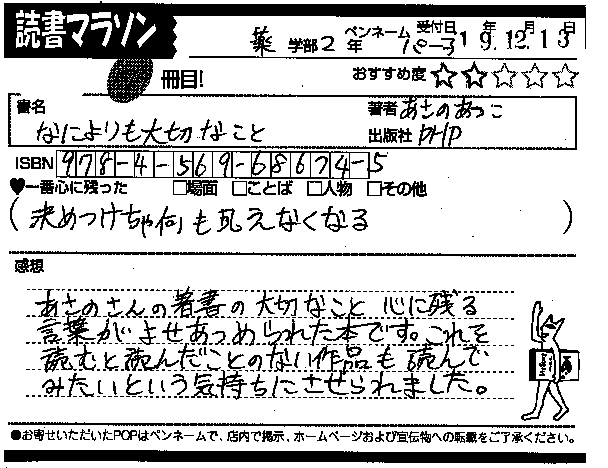 読書マラソン
薬 学部 2 年 ペンネーム パーコ 受付日 19年12月13日
冊目! おすすめ度 ☆☆☆☆☆
書名 なによりも大切なこと
著者 あさのあつこ
出版社 PHP
ISBN 978-4-569-68674-5
♥一番心に残った □場面 □ことば □人物 □その他
(決めつけちゃ何も見えなくなる)
感想
あさのさんの著書の大切なこと 心に残る
言葉がよせあつめられた本です。これを
読むと読んだことのない作品も読んで
みたいという気持ちにさせられました。
●お寄せいただいたPOPはペンネームで、店内で掲示、ホームページおよび宣伝物への転載をご了承ください。